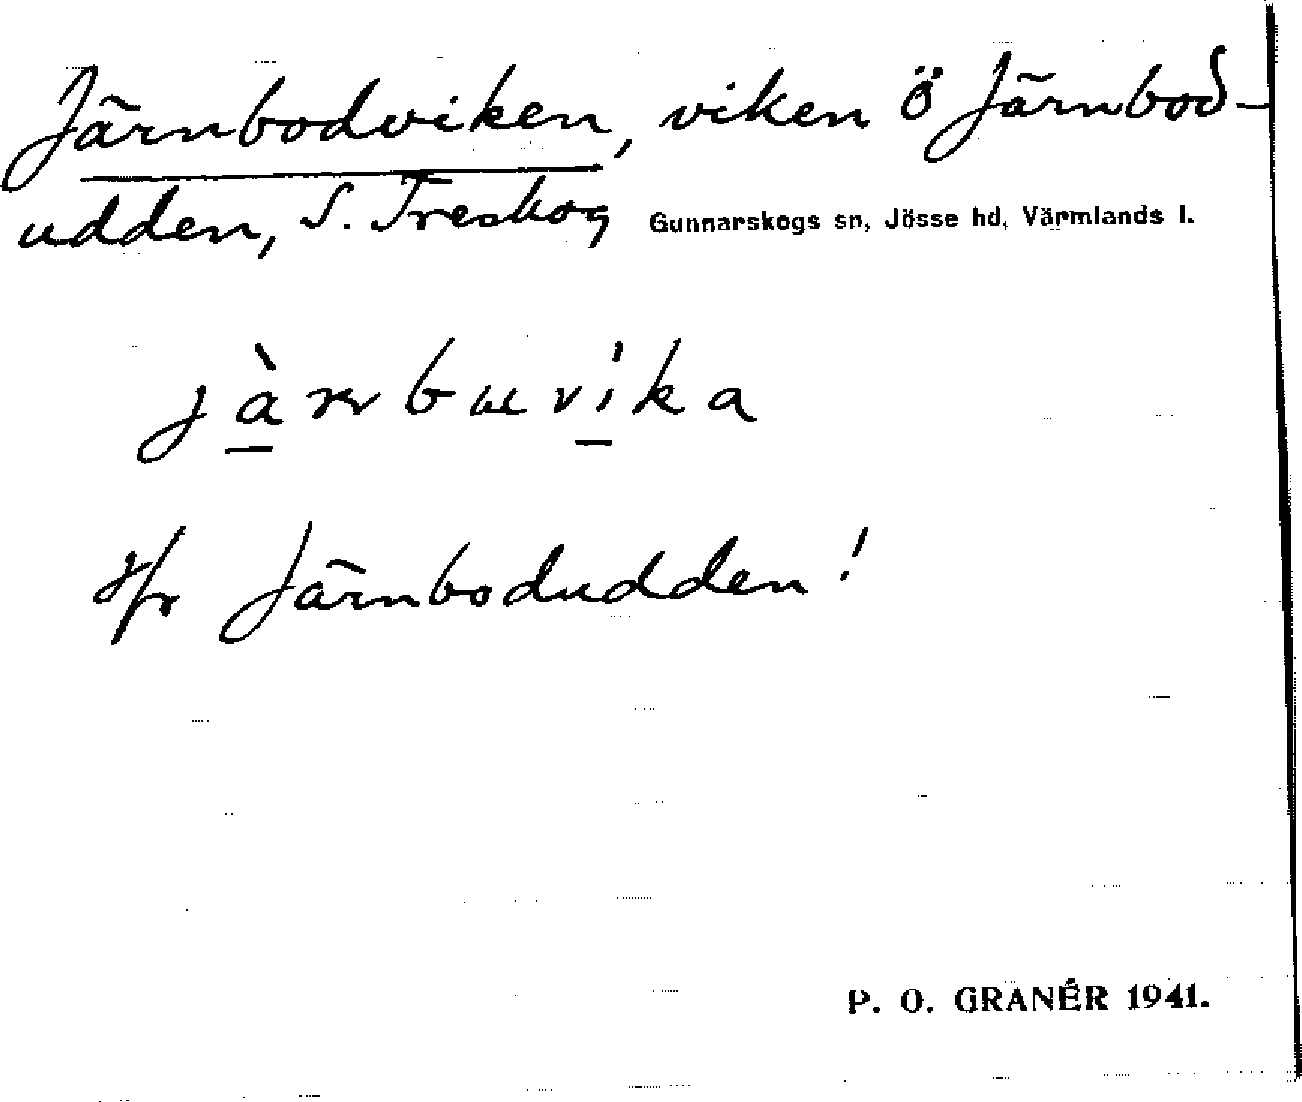 Järnbodviken, viken ö Järnbod-
udden, S. Treskog Gunnarskogs sn, Jösse hd, Värmlands l.
jà̱rnbuvi̱ka
Jfr Järnbodudden!
P. O. GRANÉR 1941.